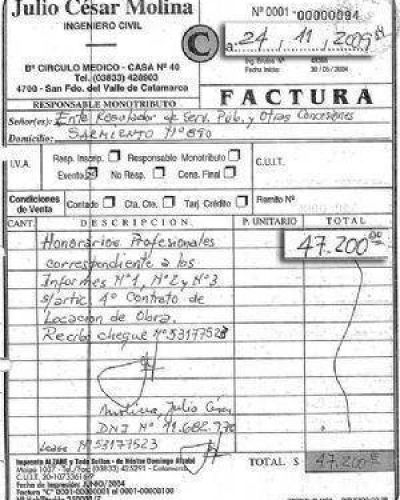 Julio César Molina
INGENIERO CIVIL
Bº CIRCULO MEDICO - CASA Nº 40
Tel. (03833) 428903
4700 - San Fdo. del Valle de Catamarca
RESPONSABLE MONOTRIBUTO
C
Nº 0001 - 00000094
a: 24, 11, 2009
Ing. Brutos Nº
Fecha Inicio: 30/06/2004
FACTURA
Señor(es): Ente Regulador de Serv. Púb. y Otras Concesiones
Domicilio: SARMIENTO Nº 890
I.V.A.
Resp. Inscrip. Responsable Monotributo
Exento No Resp. Cons. Final
C.U.I.T.
Condiciones de Venta
Contado Cta. Cte. Tarj. Crédito
Remito Nº
CANT. DESCRIPCION P. UNITARIO TOTAL
Honorarios Profesionales 47.200,00
correspondiente a los
Informes Nº1, Nº2 y Nº3
s/artic. 4º Contrato de
Locación de Obra.
Recibo cheque Nº 53177523
Molina, Julio César
DNI Nº 11.682.770
Nº 53177523
Imprenta ALZARE y Todo Sellos - de Néstor Domingo Alzabé
Maipú 1007 - Tel./Fax: (03833) 425291 - Catamarca
C.U.I.T. 20-10733618
Fecha de Impresión JUNIO/2004
Factura "C" 0001-00000001 al 0001-00000100
TOTAL $ 47.200,00